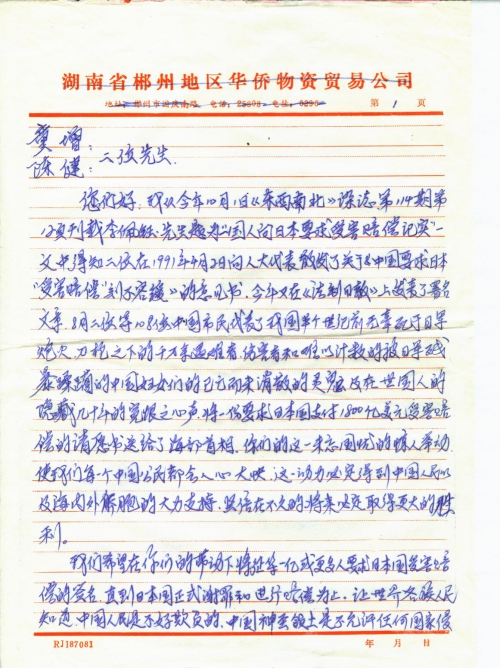 湖南省郴州地区华侨物资贸易公司
地址：郴州市国庆南路 电话：25808 电挂：0296 第 1 页
童增：
陈健：二位先生.
您们好，我从今年10月1日《东西南北》杂志第114期第
12页刊载李佩钰先生题为中国人向日本要求受害赔偿记实一
文中得知二位在1991年4月2日向人大代表散发了关于《中国要求日本
“受害赔偿”刻不容缓》的意见书，今年又在《法制日报》上发表了署名
文章，8月二位等108位中国市民代表了我国半个世纪前无辜死于日军
炮火刀枪之下的千万遇难者、伤害者和难以计数的被日军残
暴蹂躏的中国妇女们的已亡而未清散的灵魂及在世国人的
隐藏几十年的冤恨之心声将一份要求日本国支付1800亿美元受害赔
偿的请愿书送给了海部首相，你们的这一来忘国忧的惊人举动
使我们每个中国公民都会人心大映，这一动力必定得到中国人民以
及海内外侨胞的大力支持，坚信在不久的将来必定取得更大的胜
利。
我们希望在你们的带动下将征集一亿或更多人要求日本国受害赔
偿的签名，直到日本国正式谢罪和进行赔偿为止，让世界各族人民
知道，中国人民是不好欺负的，中国神圣领土是不允许任何国家侵
RJ187081 年 月 日